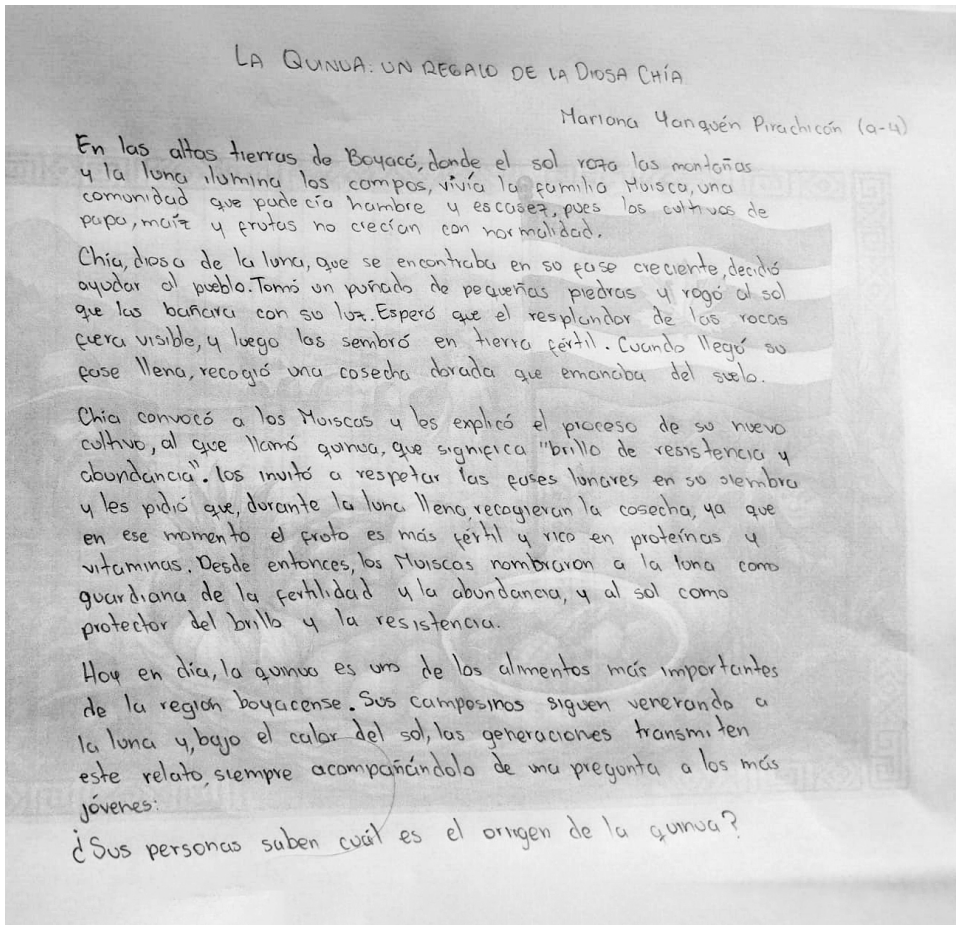 LA QUINUA: UN REGALO DE LA DIOSA CHÍA
Mariana Yanquén Pirachicón (9-4)
En las altas tierras de Boyacá, donde el sol roza las montañas
y la luna ilumina los campos, vivía la familia Muisca, una
comunidad que padecía hambre y escasez, pues los cultivos de
papa, maíz y frutas no crecían con normalidad.
Chía, diosa de la luna, que se encontraba en su fase creciente, decidió
ayudar al pueblo. Tomó un puñado de pequeñas piedras y rogó al sol
que las bañara con su luz. Esperó que el resplandor de las rocas
fuera visible, y luego las sembró en tierra fértil. Cuando llegó su
fase llena, recogió una cosecha dorada que emanaba del suelo.
Chía convocó a los Muiscas y les explicó el proceso de su nuevo
cultivo, al que llamó quinua, que significa "brillo de resistencia y
abundancia". los invitó a respetar las fases lunares en su siembra
y les pidió que, durante la luna llena, recogieran la cosecha, ya que
en ese momento el fruto es más fértil y rico en proteínas y
vitaminas. Desde entonces, los Muiscas nombraron a la luna como
guardiana de la fertilidad y la abundancia, y al sol como
protector del brillo y la resistencia.
Hoy en día, la quinua es uno de los alimentos más importantes
de la región boyacense. Sus camposinos siguen venerando a
la luna y, bajo el calor del sol, las generaciones transmiten
este relato, siempre acompañándolo de una pregunta a los más
jóvenes:
¿Sus personas saben cuál es el origen de la quinua?